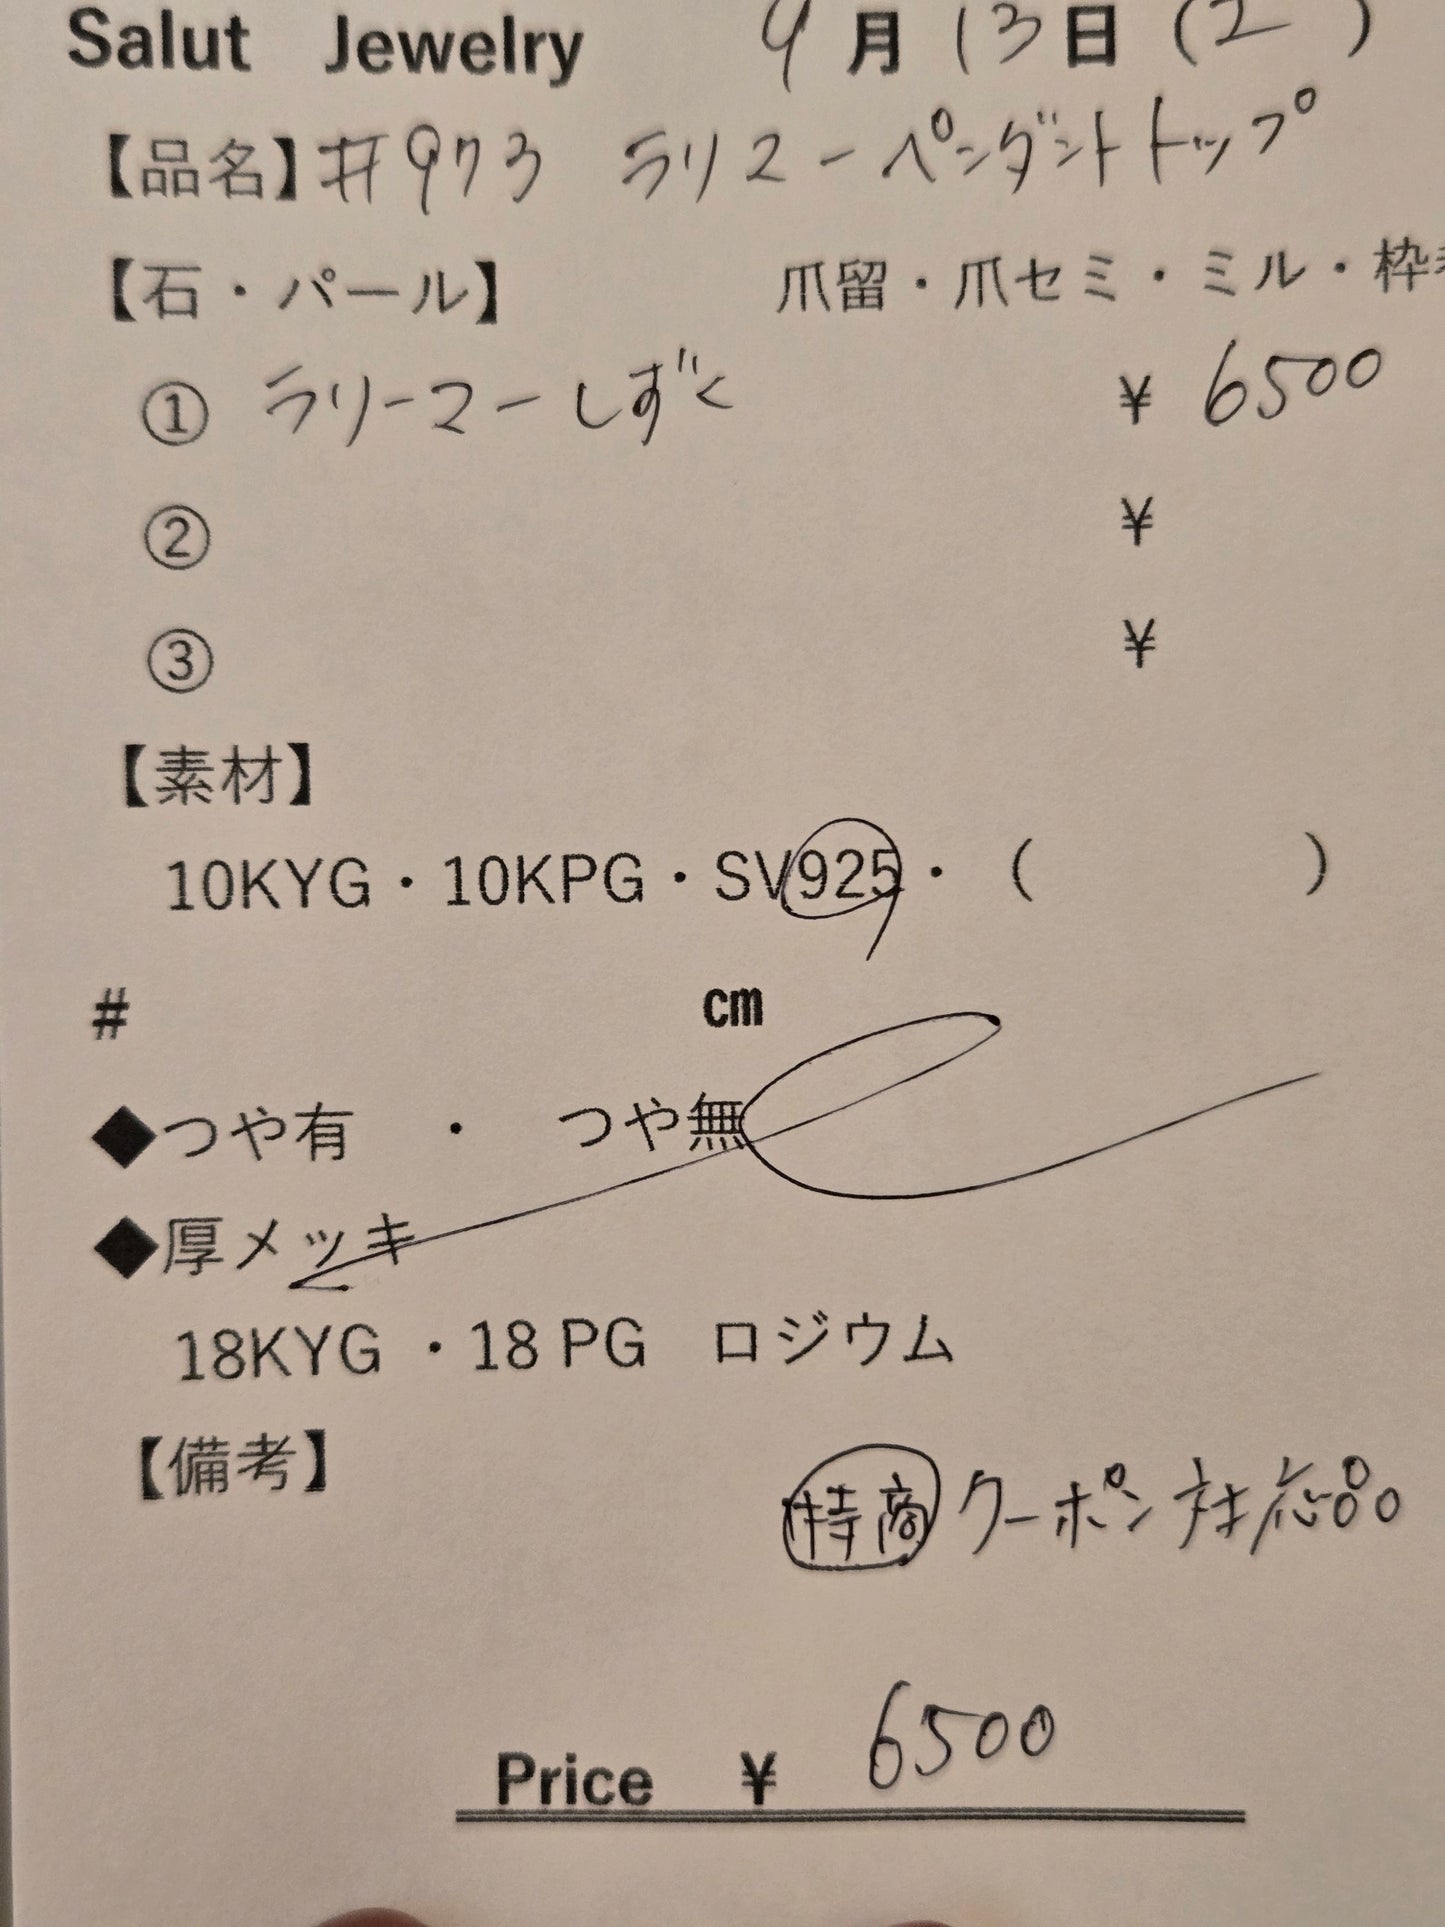 Salut Jewelry 9月13日(2)
【品名】#973 ラリマーペンダントトップ
【石・パール】 爪留・爪セミ・ミル・枠
① ラリーマーしずく ¥ 6500
② ¥
③ ¥
【素材】
10KYG・10KPG・SV925・( )
# cm
◆つや有 ・ つや無
◆厚メッキ
18KYG ・18 PG ロジウム
【備考】
特商 クーポン対応品
Price ¥ 6500